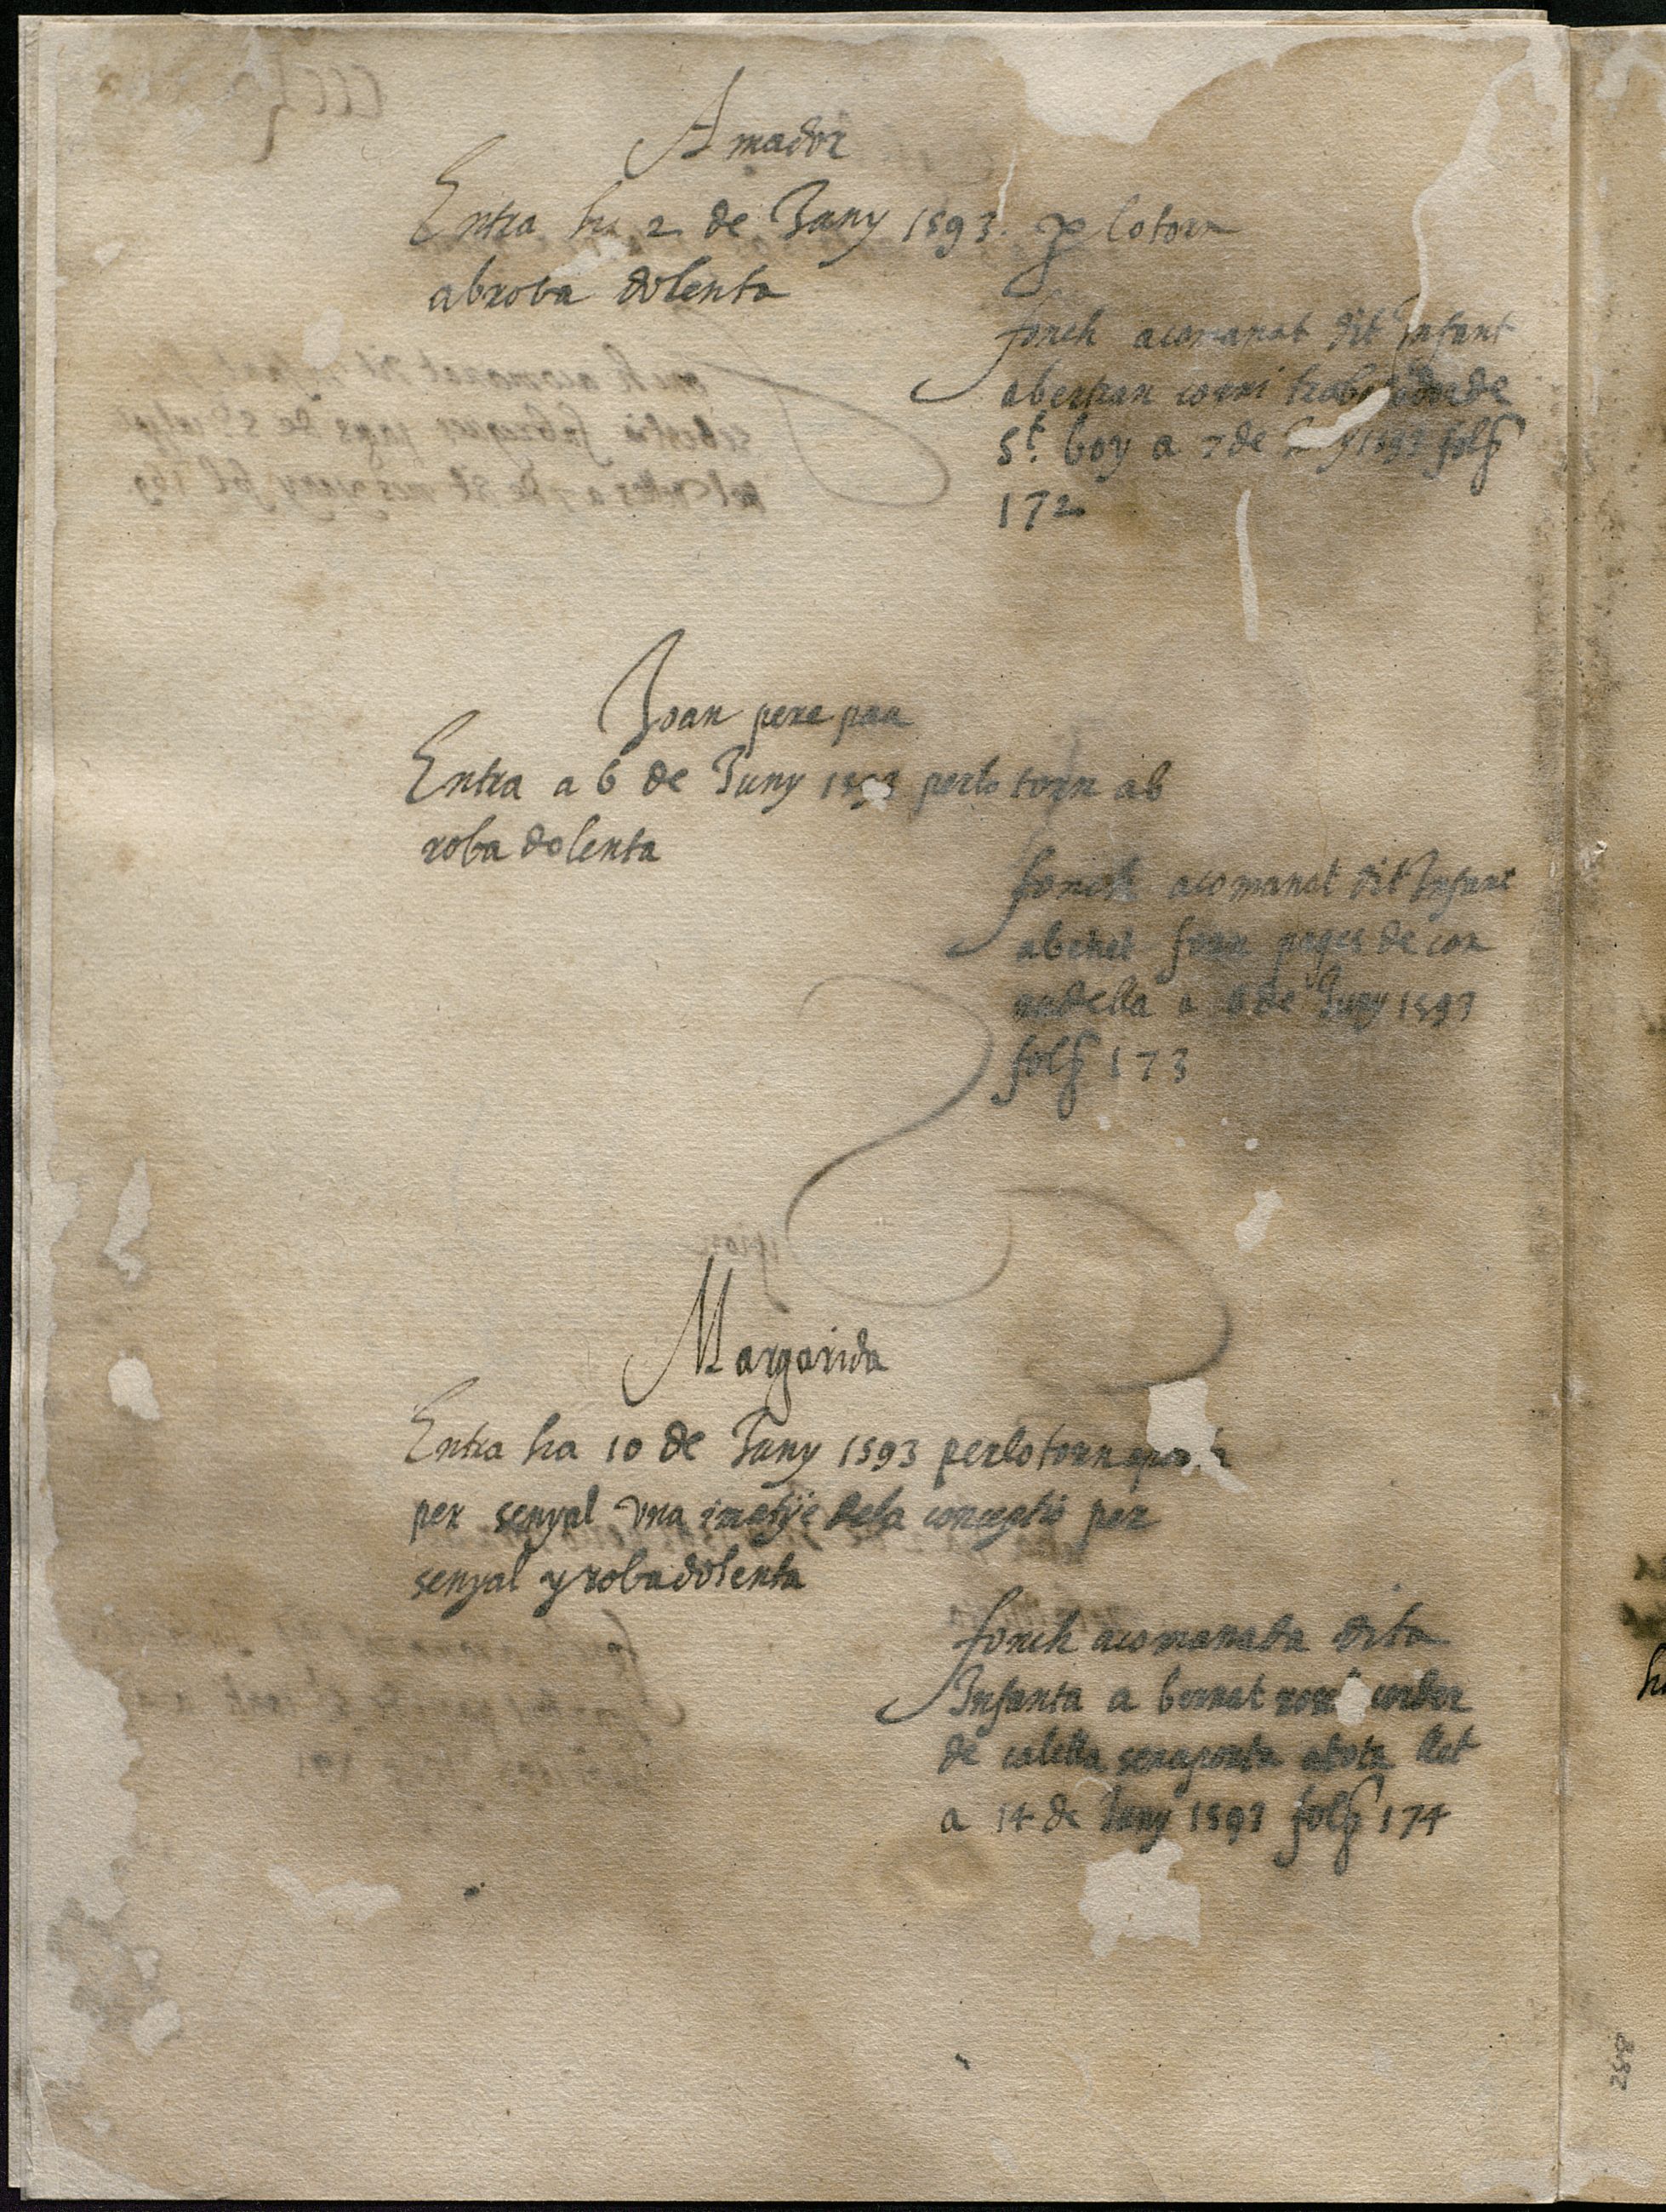 Amador
Entra ha 2 de Juny 1593. p lo torn
ab roba dolenta
fonch acomanat dit Infant
a bertran comi de
St. boy a 7 de 1593 folº
172
Joan pere pau
Entra a 6 de Juny 1593 per lo torn ab
roba dolenta
fonch acomanat dit Infant
a pages de cor
nudella a 8 de Juny 1593
folº 173
Margarida
Entra ha 10 de Juny 1593 per lo torn
per senyal una imatje de la conceptio per
senyal y roba dolenta
fonch acomanada dita
Infanta a bernat
de calella let
a 14 de Juny 1593 folº 174